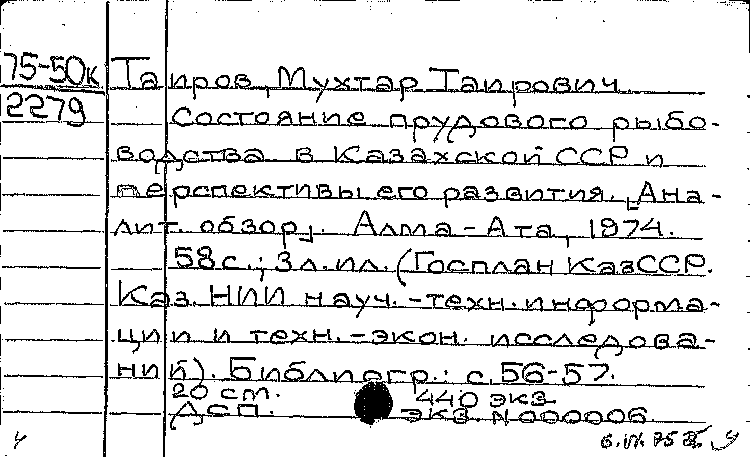 75-50к Таиров, Мухтар Таирович
2279
Состояние прудового рыбо-
водства в Казахской ССР и
перспективы его развития. [Ана-
лит. обзор]. Алма-Ата, 1974.
58 с.; 3 л. ил. (Госплан КазССР.
Каз. НИИ науч.-техн. информа-
ции и техн.-экон. исследова-
ний). Библиогр.: с. 56-57.
20 см. 440 экз.
ДСП. экз. N000006.